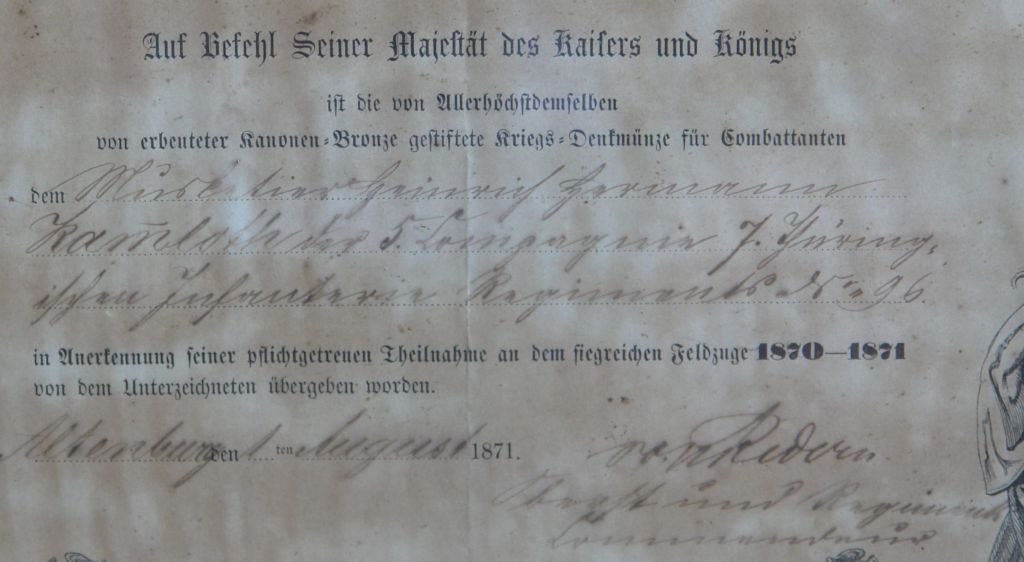 Auf Befehl Seiner Majestät des Kaisers und Königs
ist die von Allerhöchstdemselben
von erbeuteter Kanonen-Bronze gestiftete Kriegs-Denkmünze für Combattanten
dem Musketier Heinrich Hermann
der 5. Compagnie 7. Thüring-
ischen Infanterie Regiments No 96
in Anerkennung seiner pflichtgetreuen Theilnahme an dem siegreichen Feldzuge 1870—1871
von dem Unterzeichneten übergeben worden.
Altenburg den 1 ten August 1871.
von Redern
Oberst und Regiments
Commandeur